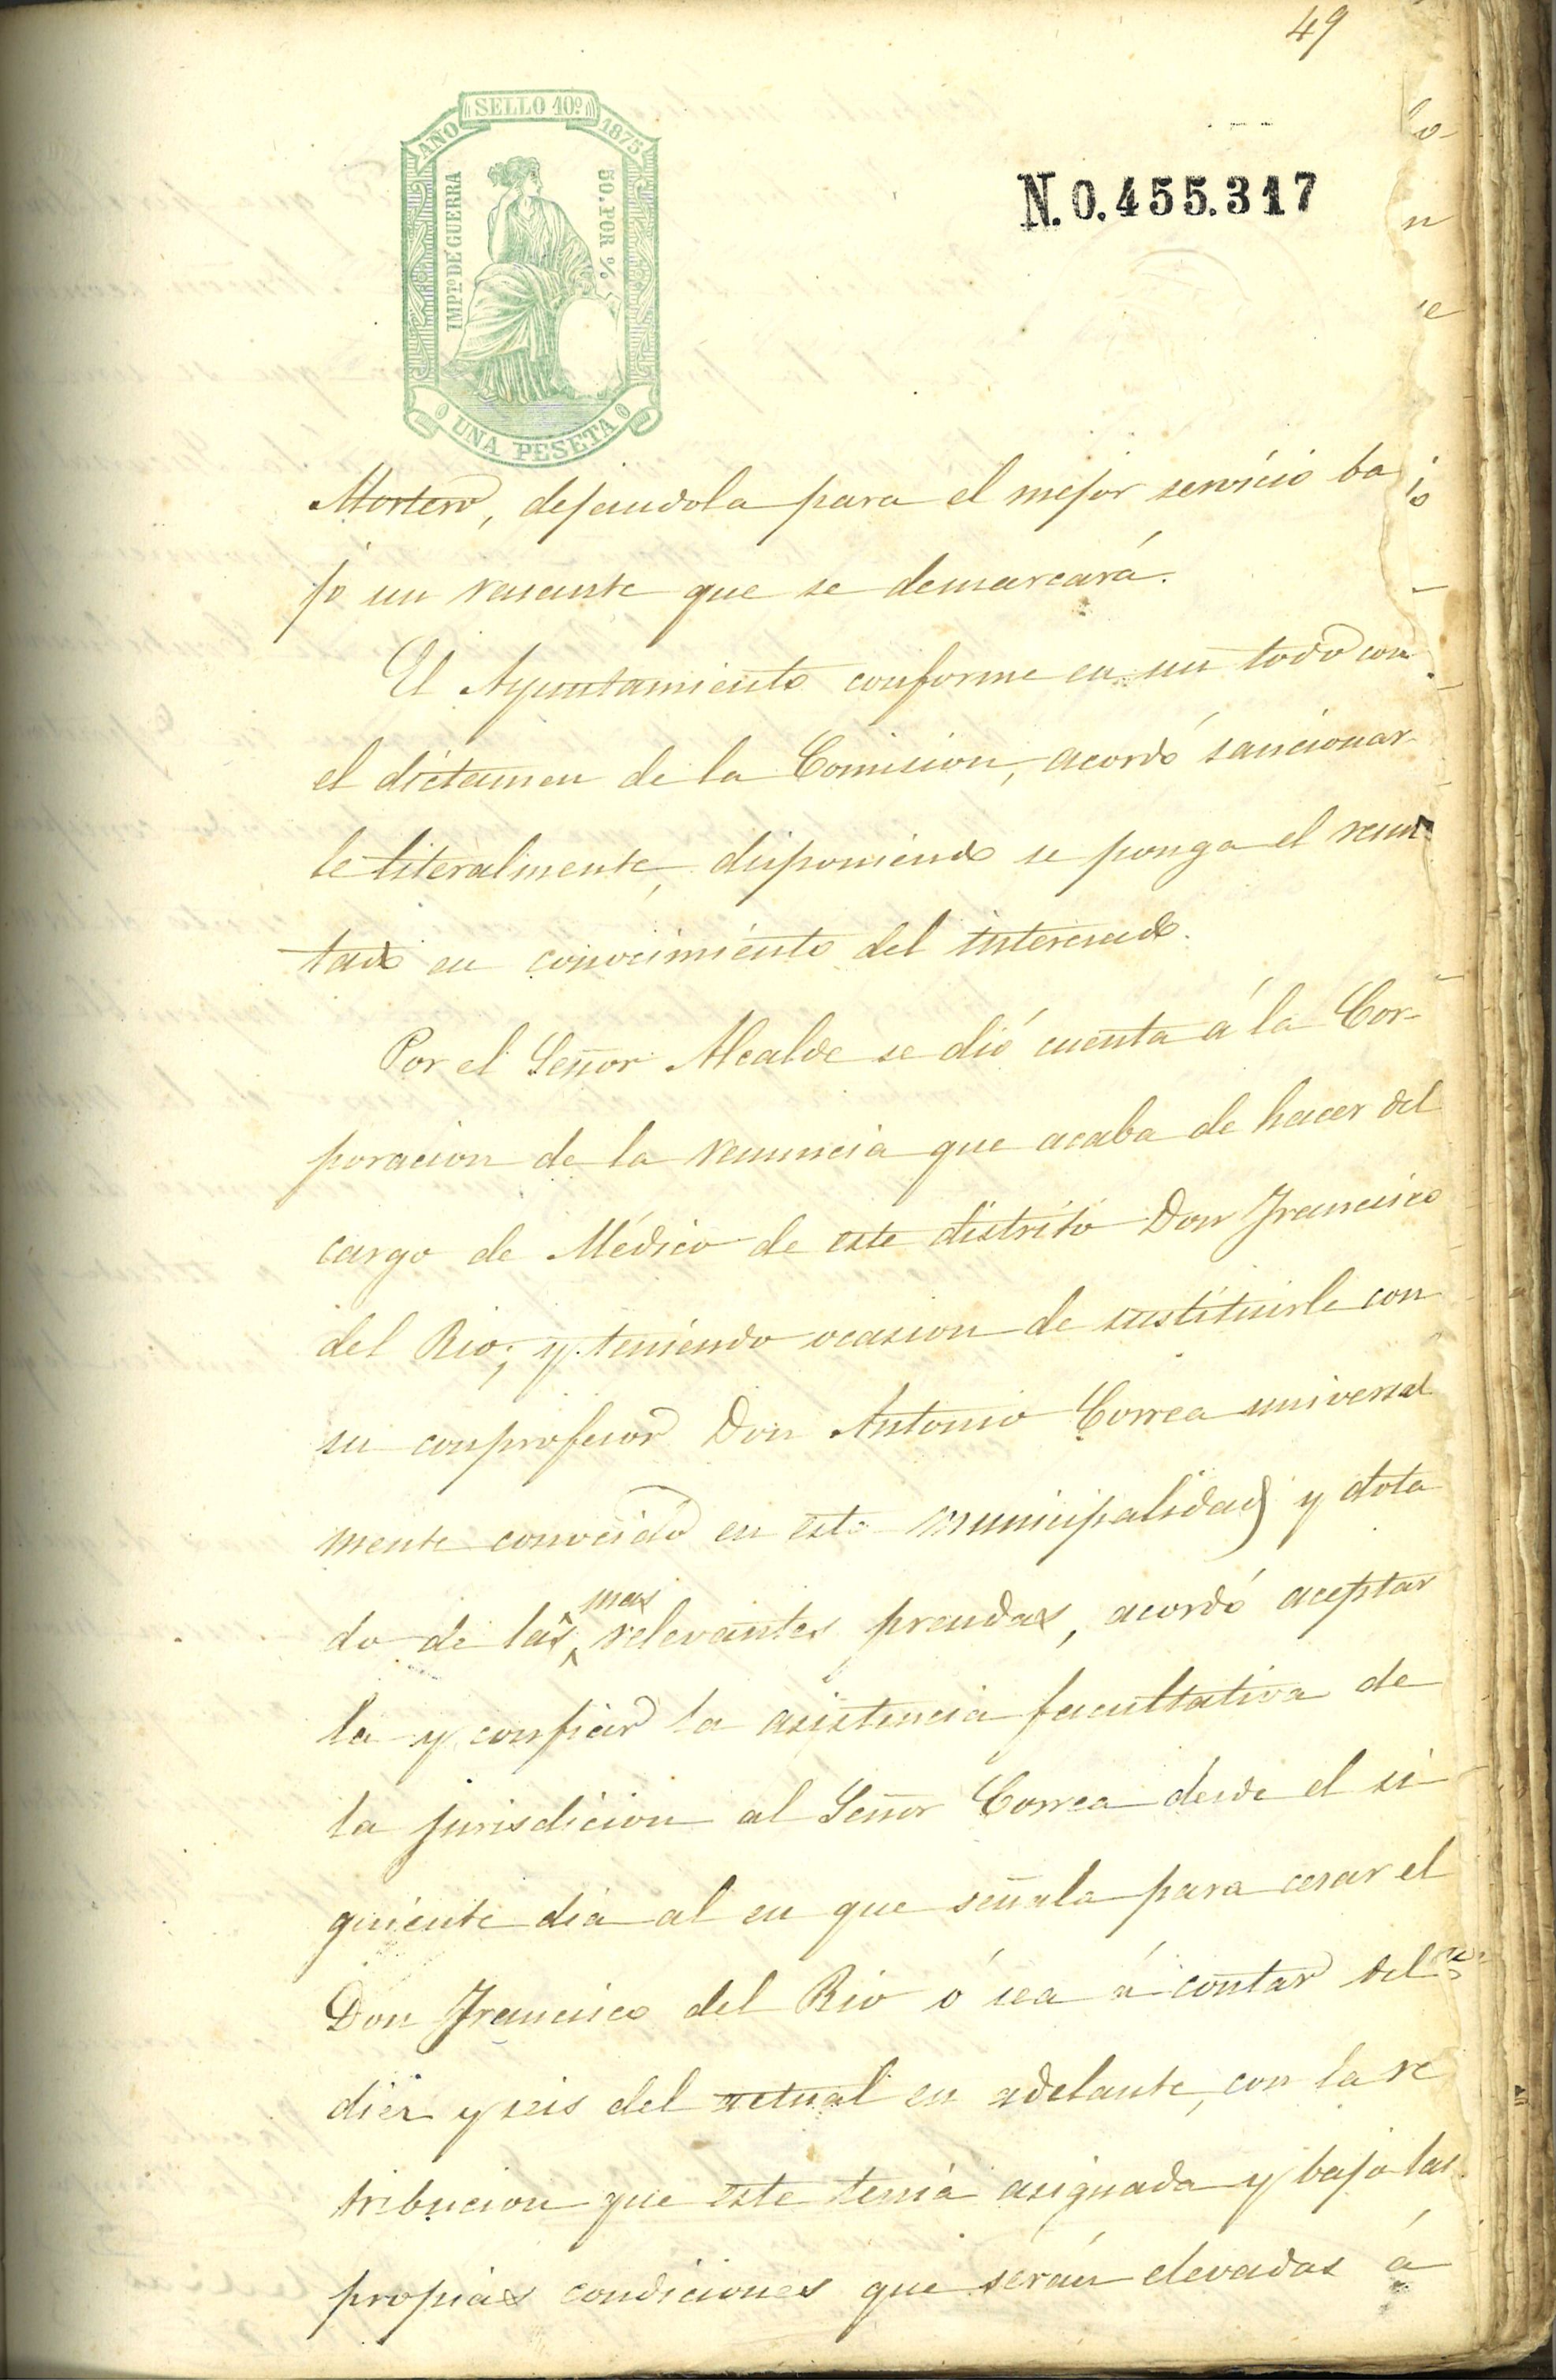 49
AÑO SELLO 10º 1875
IMPto DE GUERRA
50. POR %
UNA PESETA
N. 0.455.317
Mortero, dejandola para el mejor servicio ba
jo un rasante que se demarcará.
El Ayuntamiento conforme en un todo con
el dictamen de la Comision, acordó sancionar
le literalmente, disponiendo se ponga el resul
tado en conocimiento del interesado.
Por el Señor Alcalde se dió cuenta á la Cor-
poracion de la renuncia que acaba de hacer del
cargo de Médico de este distrito Don Francisco
del Rio; y teniendo ocasion de sustituirle con
su conprofesor Don Antonio Correa universal
mente conocido en esta municipalidad y dota
do de las mas relevantes prendas, acordó aceptar
la y confiar la asistencia facultativa de
la jurisdicion al Señor Correa desde el si
guiente dia al en que señala para cesar el
Don Francisco del Rio ó sea á contar del
diez y seis del actual en adelante, con la re
tribucion que este tenia asignada y bajo las
propias condiciones que serán elevadas á